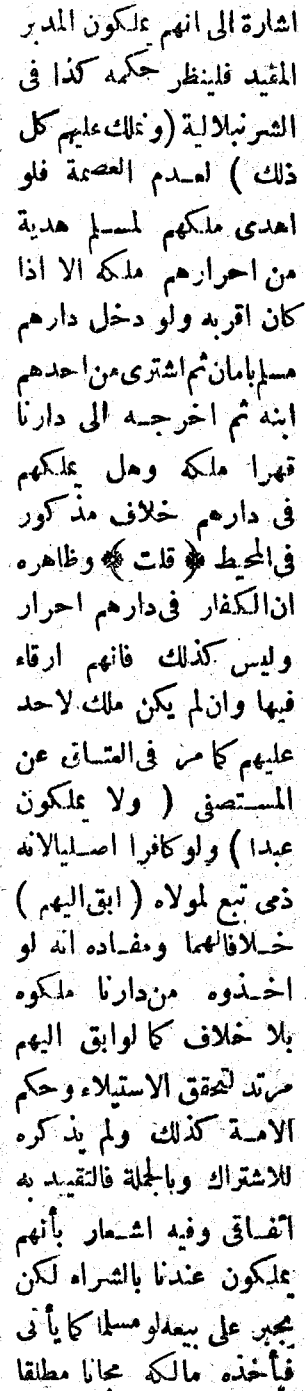 اشارة الى انهم يملكون المدبر
المقيد فلينظر حكمه كذا فى
الشرنبلالية (ونملك عليهم كل
ذلك ) لعدم العصمة فلو
اهدى ملكهم لمسلم هدية
من احرارهم ملكه الا اذا
كان اقربه ولو دخل دارهم
مسلم بامان ثم اشترى من احدهم
ابنه ثم اخرجه الى دارنا
قهرا ملكه وهل يملكهم
فى دارهم خلاف مذكور
فى المحيط ﴿ قلت ﴾ وظاهره
ان الكفار فى دارهم احرار
وليس كذلك فانهم ارقاء
فيها وان لم يكن ملك لاحد
عليهم كما مر فى العتاق عن
المستصفى ( ولا يملكون
عبدا ) ولو كافرا اصليا لانه
ذمى تبع لمولاه ( ابق اليهم )
خلافا لهما ومفاده انه لو
اخذوه من دارنا ملكوه
بلا خلاف كما لوابق اليهم
مرتد لتحقق الاستيلاء وحكم
الامة كذلك ولم يذكره
للاشتراك وبالجملة فالتقييد به
اتفاقى وفيه اشعار بأنهم
يملكون عندنا بالشراء لكن
يجبر على بيعه لو مسلما كما يأتى
فيأخذه مالكه مجانا مطلقا